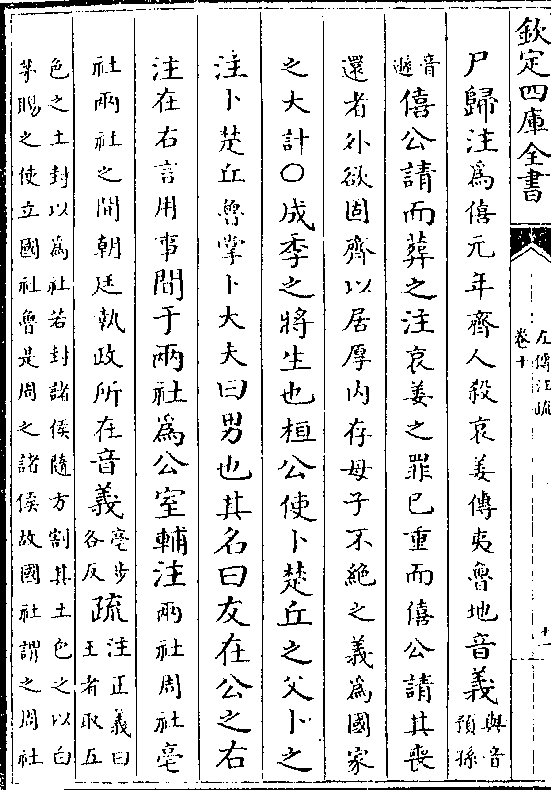 欽定四庫全書
左傳注疏
卷十
尸歸注為僖元年齊人殺哀姜傳夷魯地音義與音預孫
音遜僖公請而葬之注哀姜之罪已重而僖公請其喪
還者外欲固齊以居厚内存母子不絶之義為國家
之大計○成季之將生也桓公使卜楚丘之父卜之
注卜楚丘魯掌卜大夫曰男也其名曰友在公之右
注在右言用事間于兩社為公室輔注兩社周社亳
社兩社之間朝廷執政所在音義亳步各反疏注正義曰王者取五
色之土封以為社若封諸侯隨方割其土色之以白
茅賜之使立國社魯是周之諸侯故國社謂之周社